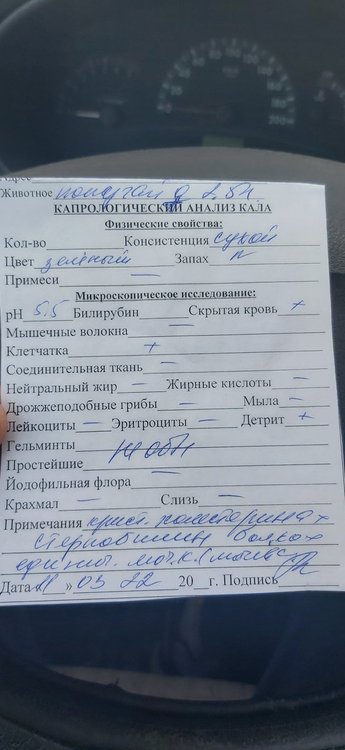 Животное попугай ♀ 2,5л.
КАПРОЛОГИЧЕСКИЙ АНАЛИЗ КАЛА
Физические свойства:
Кол-во Консистенция сухой
Цвет зеленый Запах N
Примеси —
Микроскопическое исследование:
pH 5,5 Билирубин Скрытая кровь +
Мышечные волокна —
Клетчатка +
Соединительная ткань —
Нейтральный жир — Жирные кислоты —
Дрожжеподобные грибы — Мыла —
Лейкоциты — Эритроциты — Детрит +
Гельминты
Простейшие не обн
Йодофильная флора —
Крахмал — Слизь —
Примечания крист. холестерина +
+
един.
Дата 11 » 03 22 20 г. Подпись